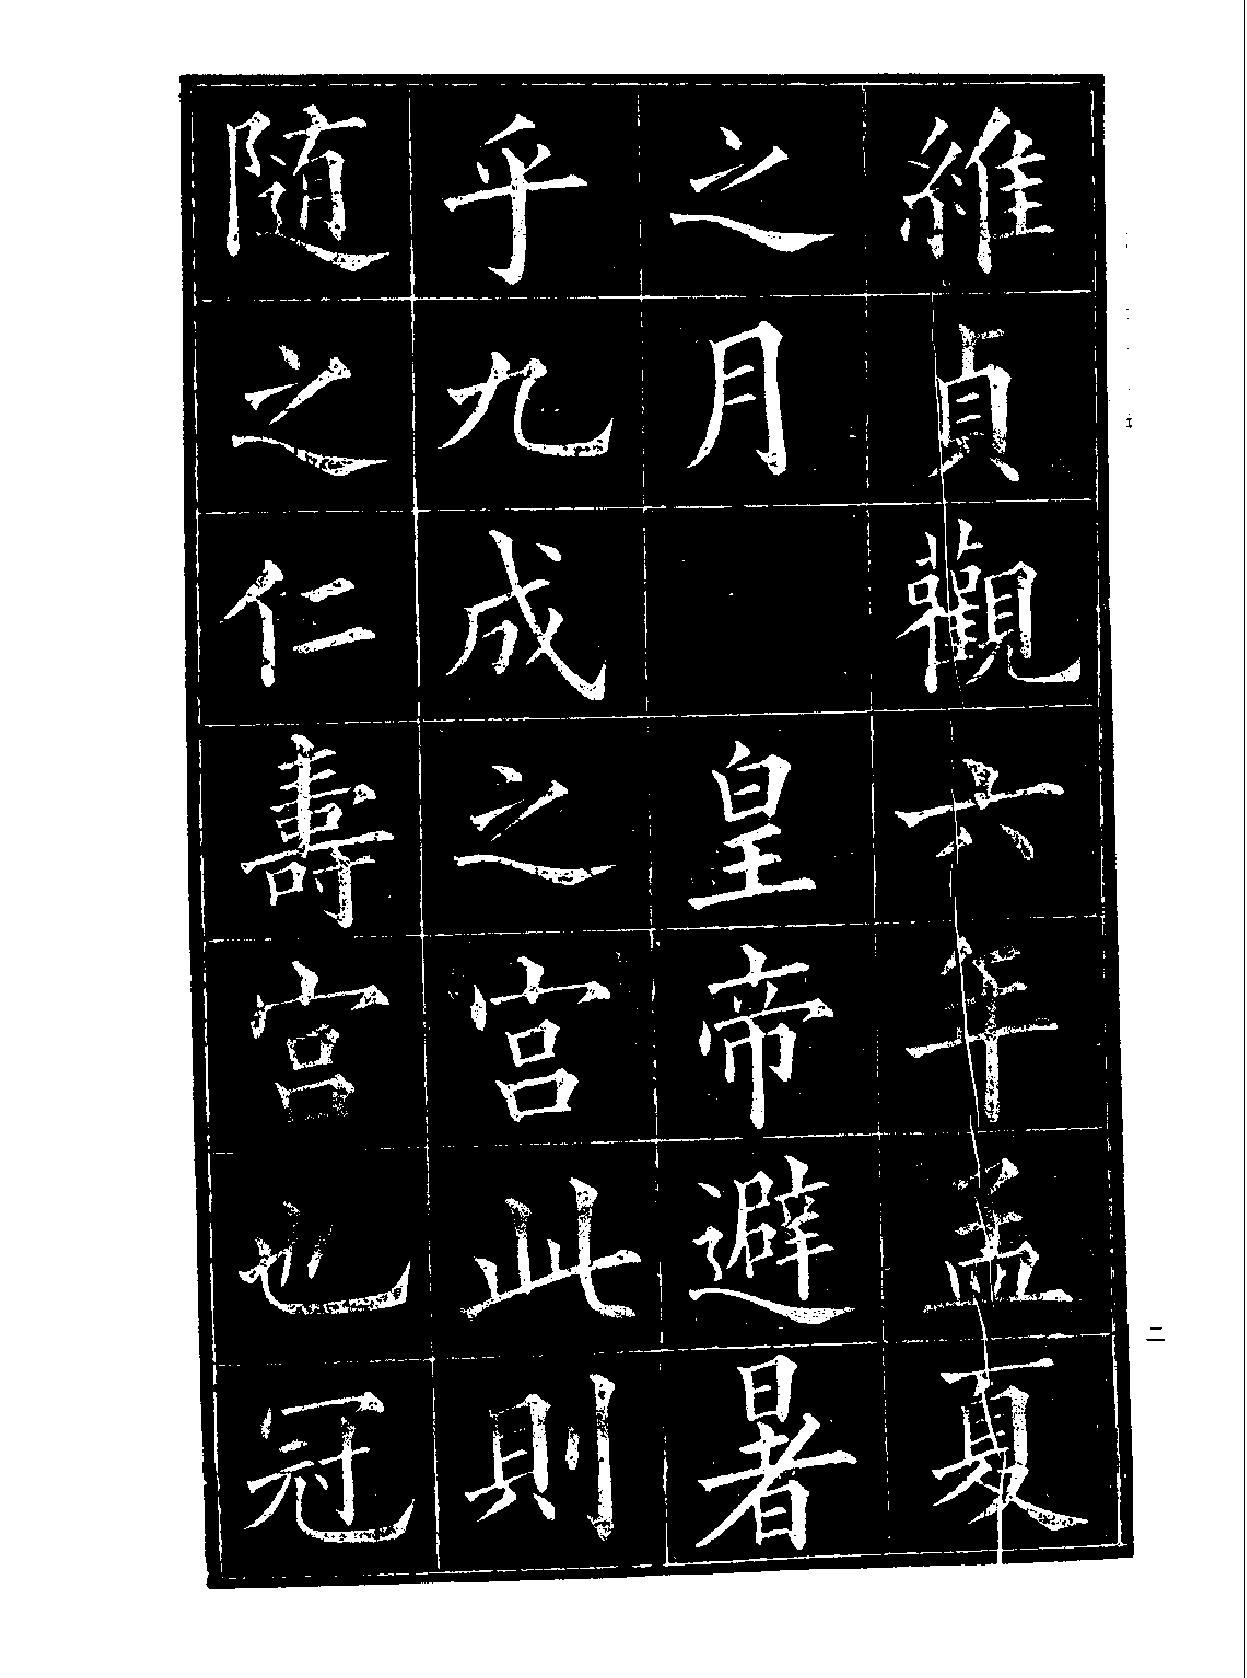 維貞觀六年孟夏
之月皇帝避暑
乎九成之宮此則
随之仁壽宮也冠
二